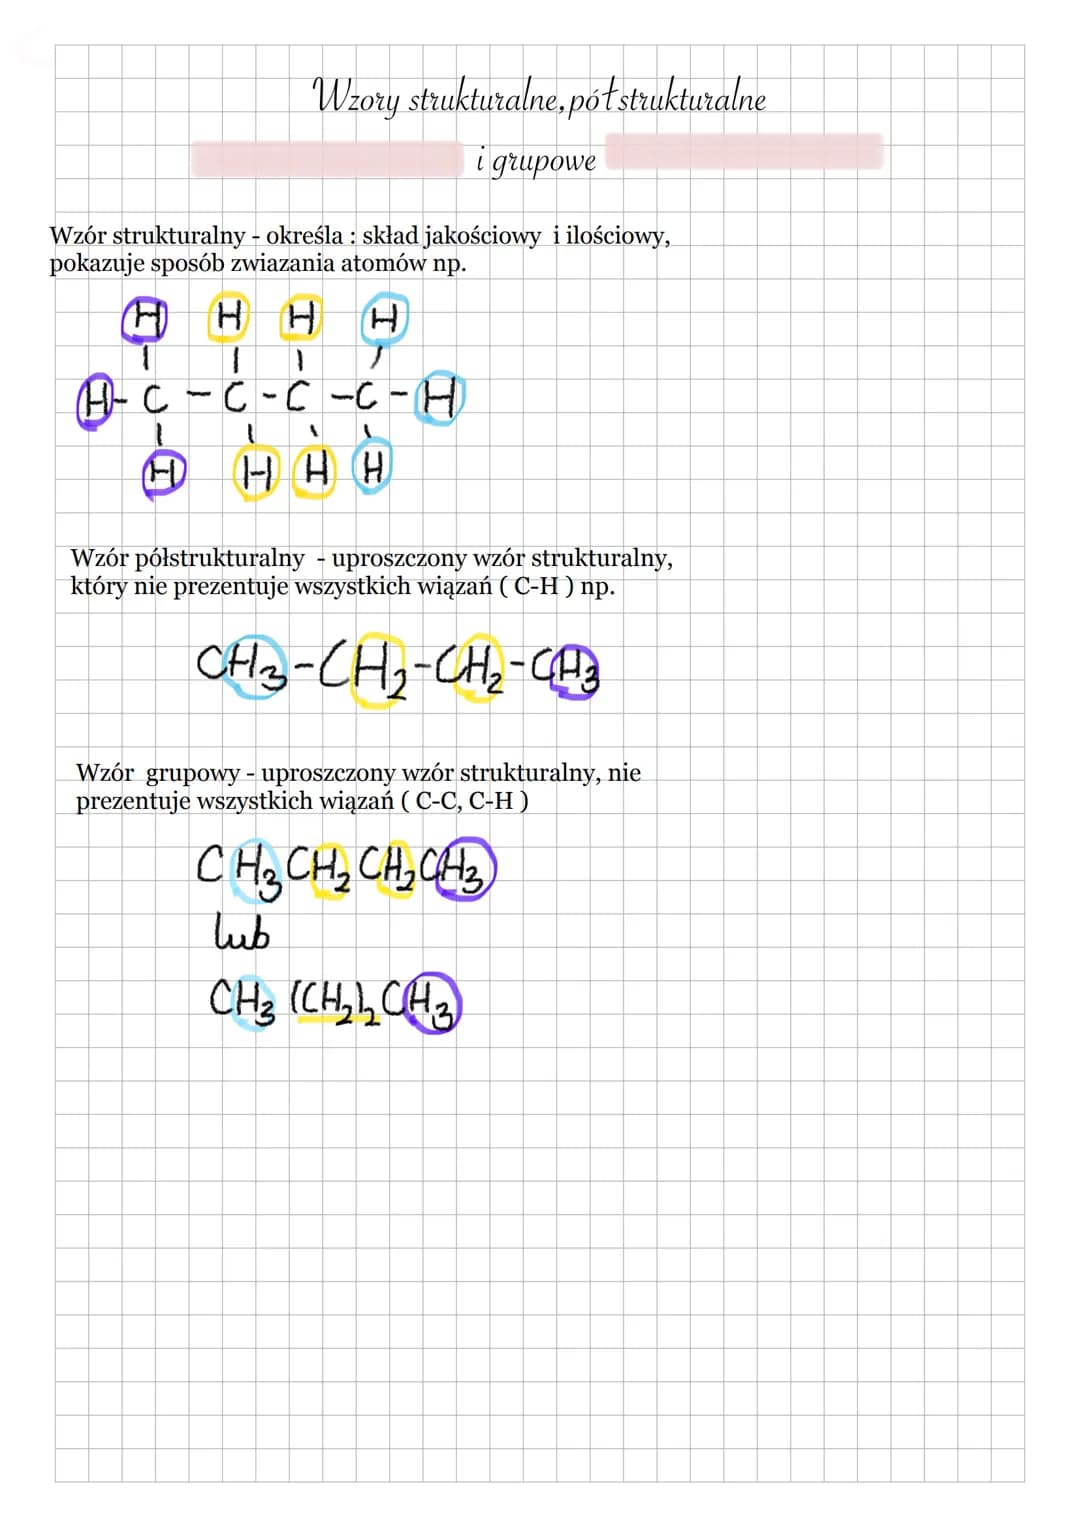 Wzory strukturalne, półstrukturalne
i grupowe
Wzór strukturalny - określa : skład jakościowy i ilościowy,
pokazuje sposób zwiazania atomów np.
H H H H
H- C - C - C - C - H
H H H H
Wzór półstrukturalny - uproszczony wzór strukturalny,
który nie prezentuje wszystkich wiązań ( C-H ) np.
CH₃-CH₂-CH₂-CH₃
Wzór grupowy - uproszczony wzór strukturalny, nie
prezentuje wszystkich wiązań ( C-C, C-H )
CH₃CH₂CH₂CH₃
lub
CH₃(CH₂)₂CH₃